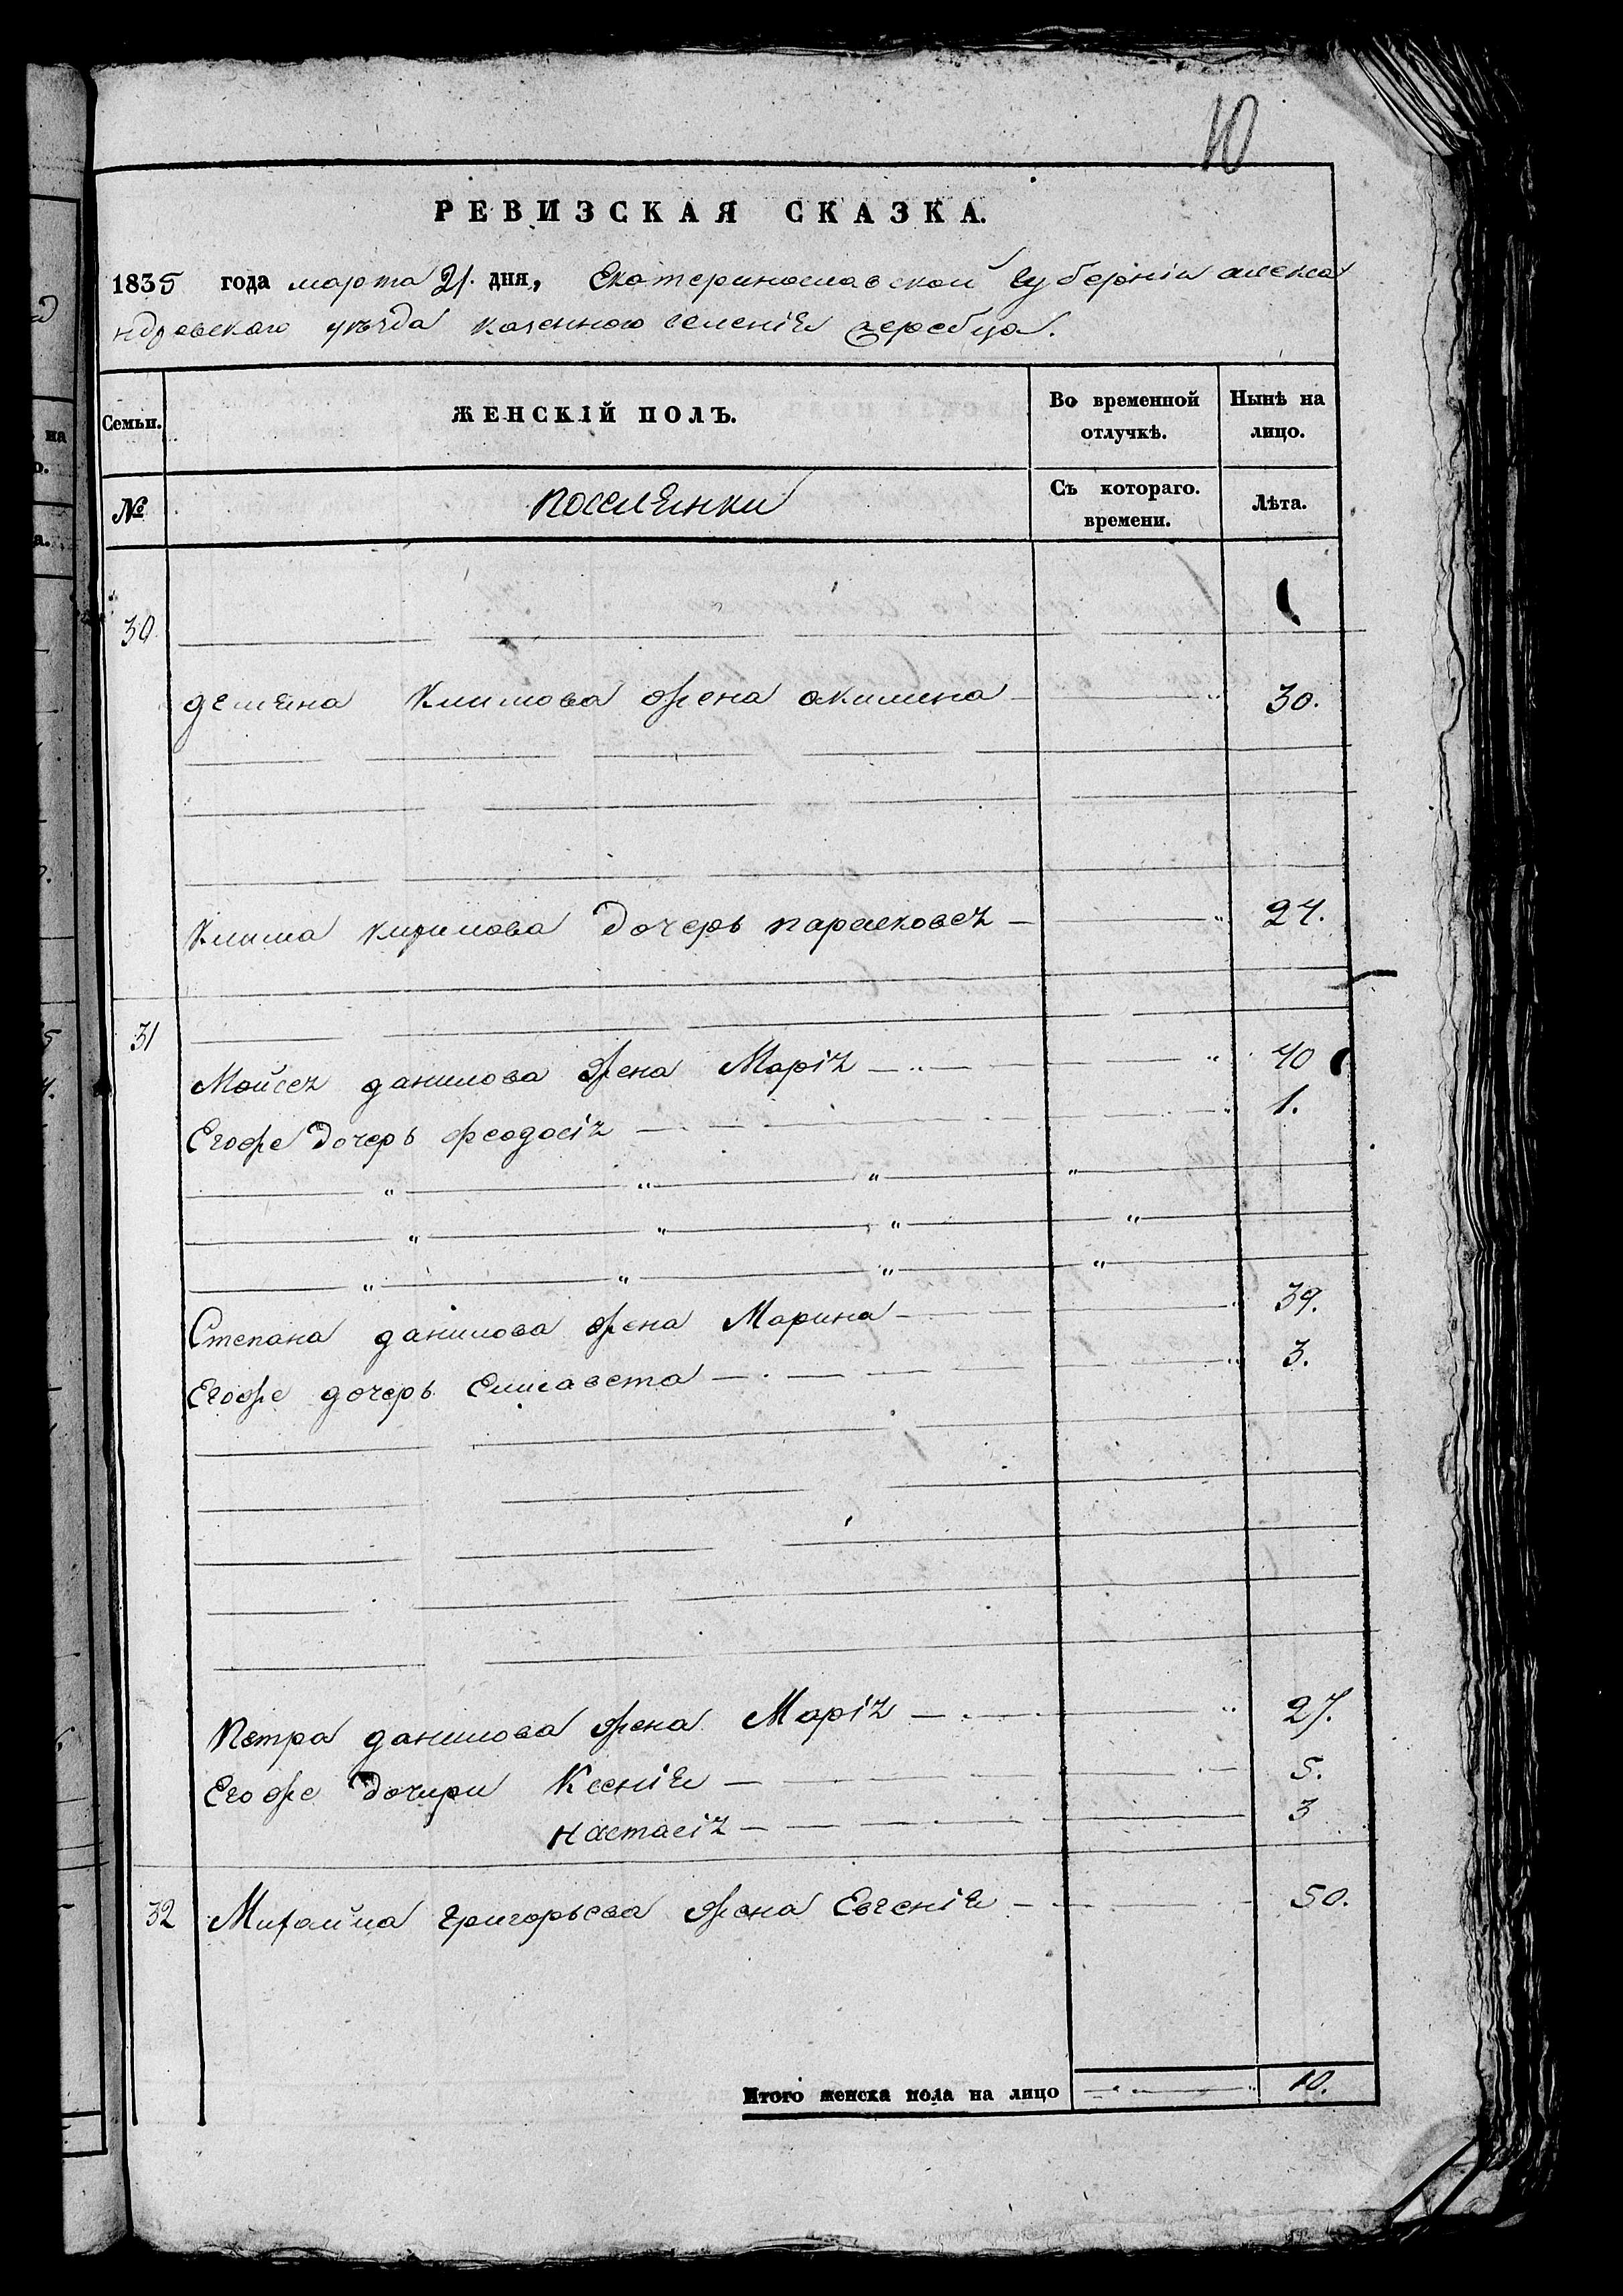 10
РЕВИЗСКАЯ СКАЗКА.
1835 года марта 21. дня, Екатеринославской губерніи алекса
ндровскаго уѣзда казенного селенія жеребца.
Семьи. ЖЕНСКІЙ ПОЛЪ. Во временной отлучкѣ. Нынѣ на лицо.
№ поселянки Съ котораго. времени. Лѣта.
30
демяна Климова жена акилина 30.
Клима Кирилова дочерь парасковея 24.
31
Мойсея данилова жена Марія 40
Егоже дочерь феодосія 1.
Степана данилова жена Марина 39.
Егоже дочерь Елисавета 3.
Петра данилова жена Марія 27.
Егоже дочери Ксенія 5.
настасія 3
32 Михайла григорьева жена Евгенія 50.
Итого женска пола на лицо 10.